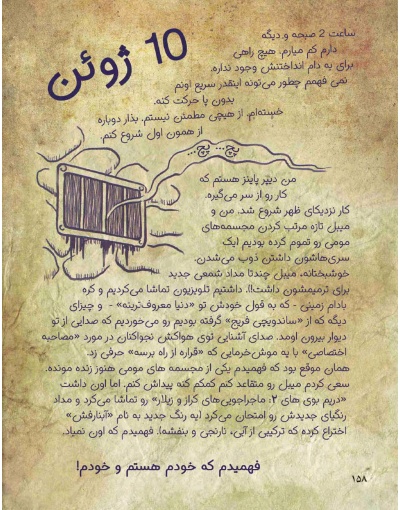 10 ژوئن
ساعت 2 صبحه و دیگه
دارم کم میارم. هیچ راهی
برای به دام انداختنش وجود نداره.
نمی فهمم چطور می‌تونه اینقدر سریع اونم
بدون پا حرکت کنه.
خسته‌ام. از هیچی مطمئن نیستم. بذار دوباره
از همون اول شروع کنم.
پچ... پچ...
من دیپر پاینز هستم که
کار رو از سر می‌گیره.
کار نزدیکای ظهر شروع شد. من و
میبل تازه مرتب کردن مجسمه‌های
مومی رو تموم کرده بودیم (یک
سری‌هاشون داشتن ذوب می‌شدن.
خوشبختانه، میبل چندتا مداد شمعی جدید
برای ترمیمشون داشت!). داشتیم تلویزیون تماشا می‌کردیم و کره
بادام زمینی - که به قول خودش تو «دنیا معروف‌ترینه» - و چیزای
دیگه که از «ساندویچی فریج» گرفته بودیم رو می‌خوردیم که صدایی از تو
دیوار بیرون اومد. صدای آشنایی توی هواکش نجواکنان در مورد «مصاحبه
اختصاصی» با یه موش‌خرمایی که «قراره از راه برسه» حرفی زد.
همان موقع بود که فهمیدم یکی از مجسمه های مومی هنوز زنده مونده.
سعی کردم میبل رو متقاعد کنم کمکم کنه پیداش کنم. اما اون داشت
«دریم بوی های ۲: ماجراجویی‌های کراز و زیلار» رو تماشا می‌کرد و مداد
رنگیای جدیدش رو امتحان می‌کرد (یه رنگ جدید به نام «آبنارفش»
اختراع کرده که ترکیبی از آبی، نارنجی و بنفشه). فهمیدم که اون نمیاد.
فهمیدم که خودم هستم و خودم!
۱۵۸